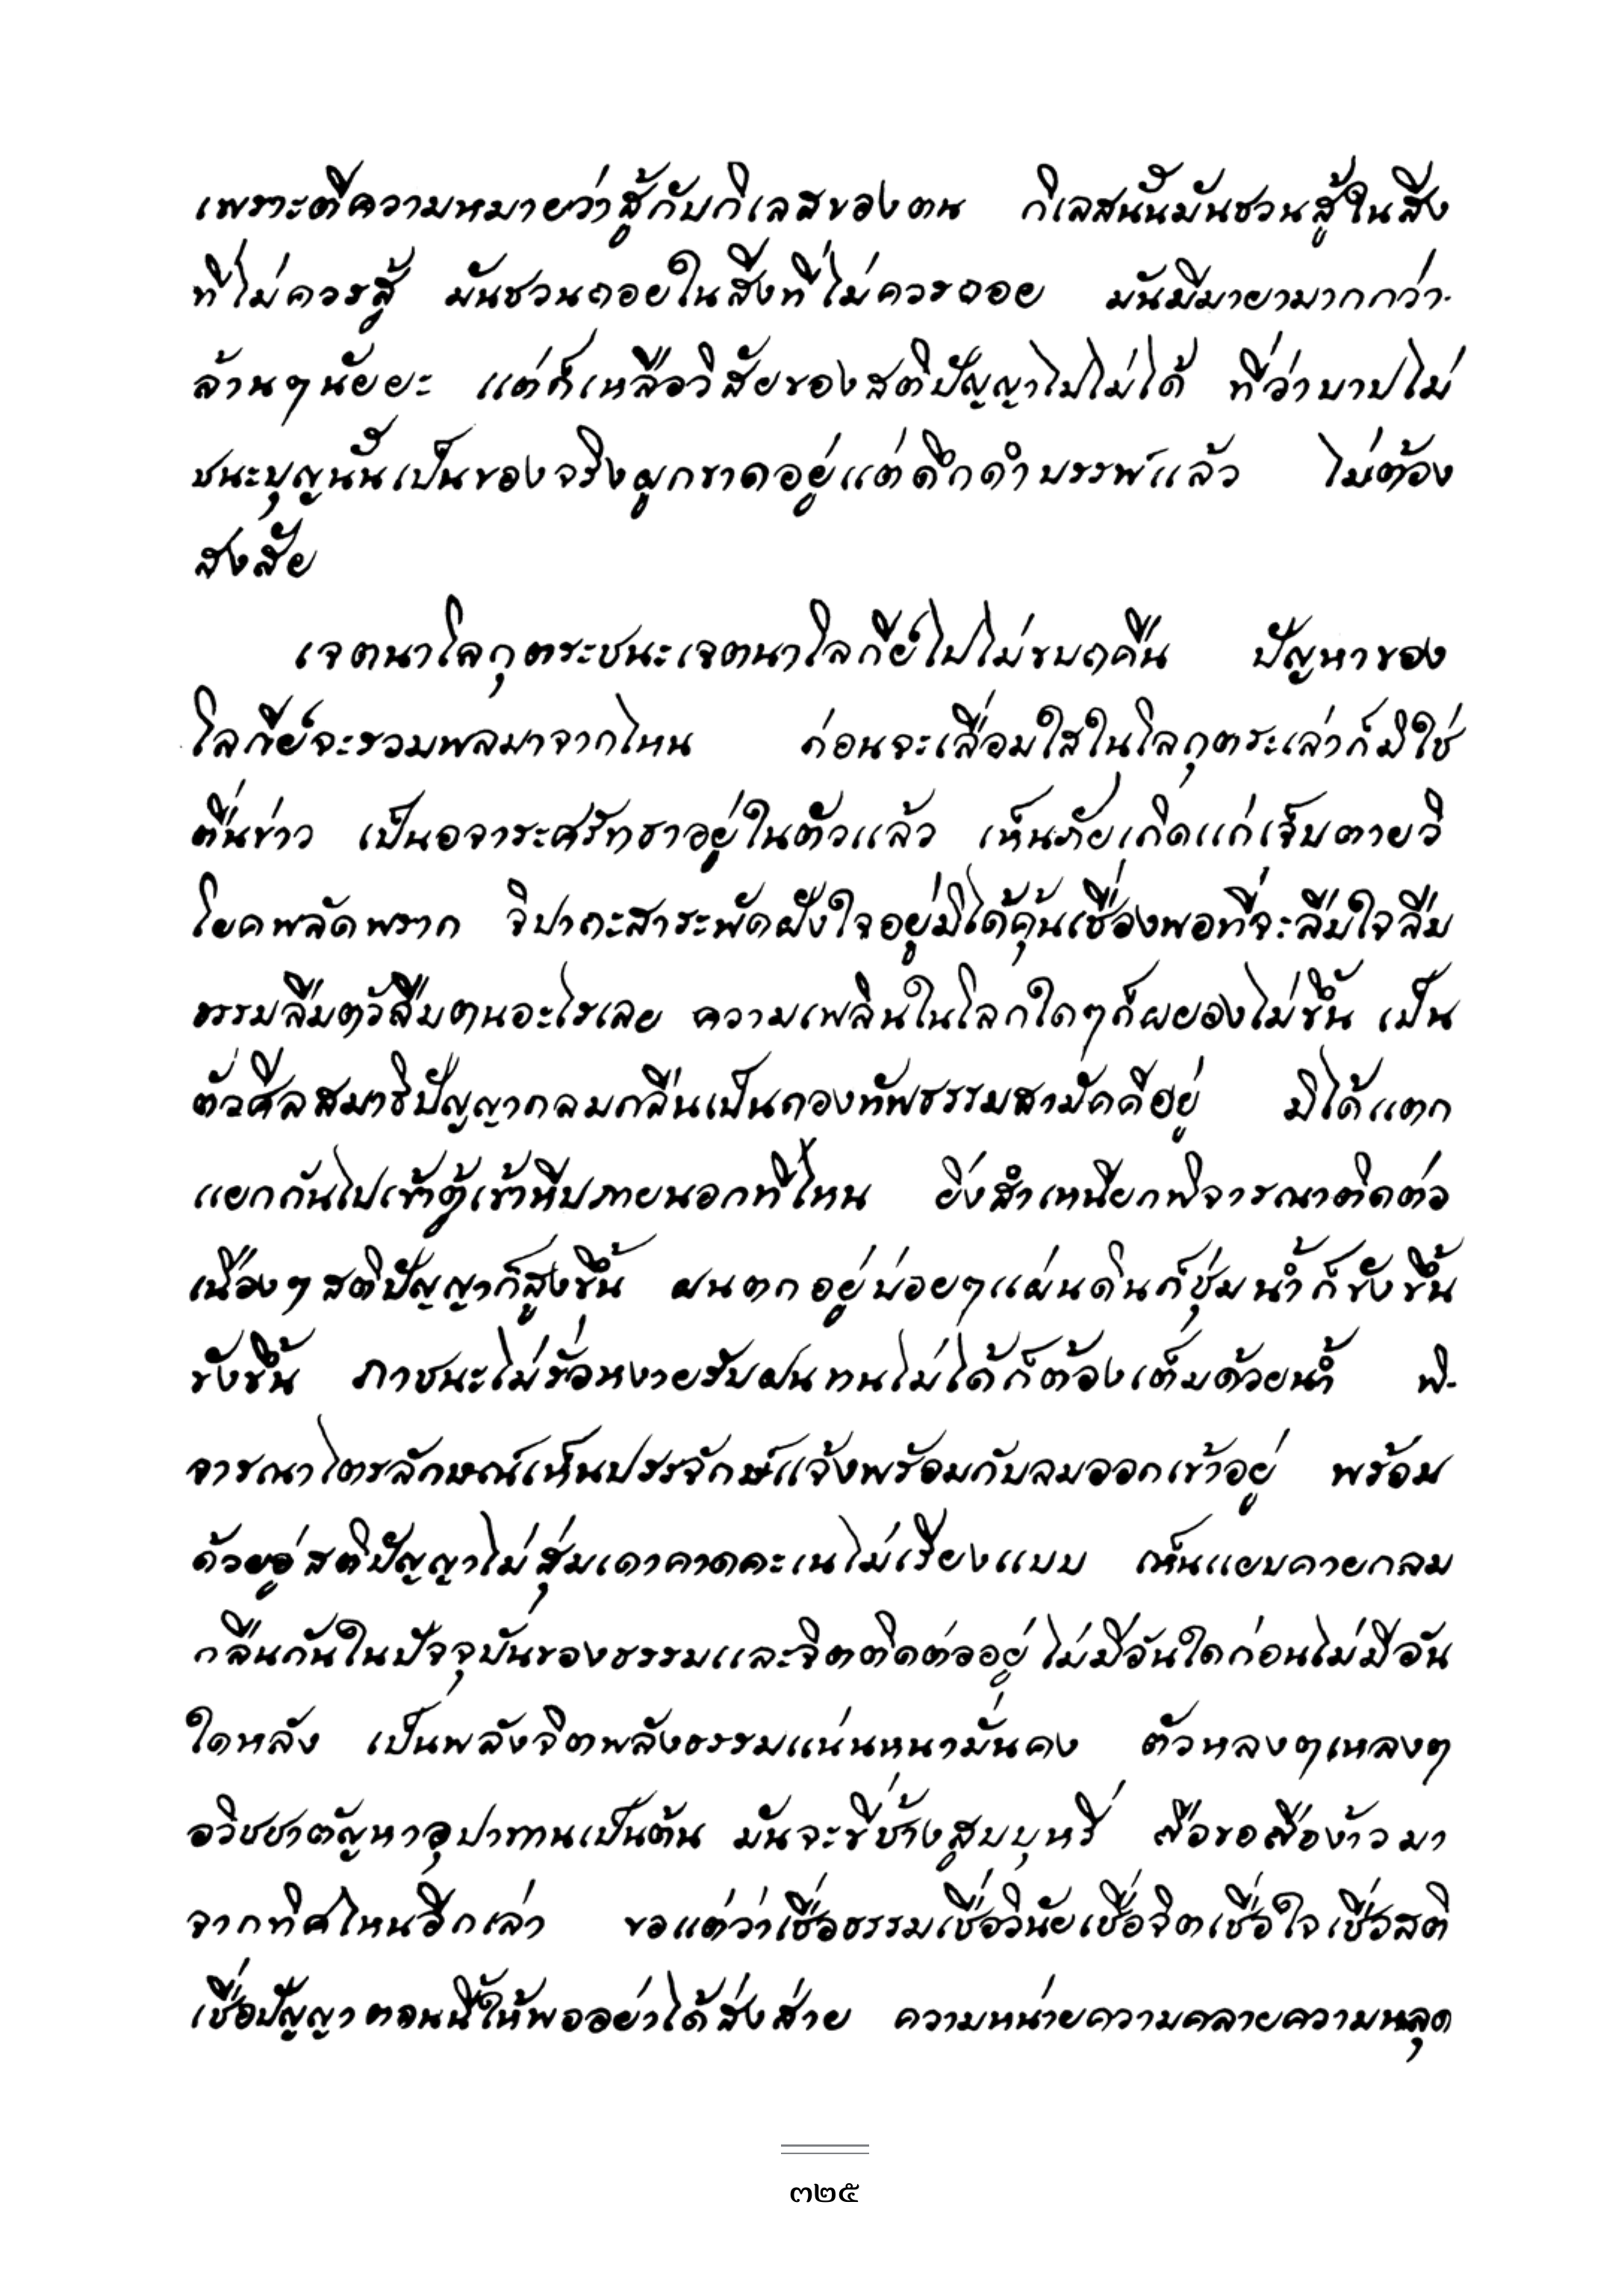 เพราะตีความหมายว่าสู้กับกิเลสของตน กิเลสนั้นมันชวนสู้ในสิ่ง
ที่ไม่ควรสู้ มันชวนถอยในสิ่งที่ไม่ควรถอย มันมีมายามากกว่า-
ล้านๆนัยยะ แต่ก็เหลือวิสัยของสติปัญญาไปไม่ได้ ที่ว่าบาปไม่
ชนะบุญนั้นเป็นของจริงผูกขาดอยู่แต่ดึกดำบรรพ์แล้ว ไม่ต้อง
สงสัย
เจตนาโลกุตระชนะเจตนาโลกีย์ไปไม่ขบถคืน ปัญหาของ
โลกีย์จะรวมพลมาจากไหน ก่อนจะเลื่อมใสในโลกุตระเล่าก็มิใช่
ตื่นข่าว เป็นอจาระศรัทธาอยู่ในตัวแล้ว เห็นภัยเกิดแก่เจ็บตายวิ
โยคพลัดพราก จิปาถะสาระพัดฝังใจอยู่มิได้คุ้นเชื่องพอที่จะลืมใจลืม
ธรรมลืมตัวลืมตนอะไรเลย ความเพลินในโลกใดๆก็ผยองไม่ขึ้น เป็น
ตัวศีลสมาธิปัญญากลมกลืนเป็นกองทัพธรรมสามัคคีอยู่ มิได้แตก
แยกกันไปเข้าตู้เข้าหีบภายนอกที่ไหน ยิ่งสำเหนียกพิจารณาติดต่อ
เนื่องๆสติปัญญาก็สูงขึ้น ฝนตกอยู่บ่อยๆแผ่นดินก็ชุ่มน้ำก็ขังขึ้น
ขังขึ้น ภาชนะไม่รั่วหงายรับฝนทนไม่ได้ก็ต้องเต็มด้วยน้ำ พิ-
จารณาไตรลักษณ์เห็นประจักษ์แจ้งพร้อมกับลมออกเข้าอยู่ พร้อม
ด้วยอยู่สติปัญญาไม่สุ่มเดาคาดคะเนไม่เรียงแบบ เห็นแยบคายกลม
กลืนกันในปัจจุบันของธรรมและจิตติดต่ออยู่ ไม่มีอันใดก่อนไม่มีอัน
ใดหลัง เป็นพลังจิตพลังธรรมแน่นหนามั่นคง ตัวหลงๆเหลงๆ
อวิชชาตัญหาอุปาทานเป็นต้น มันจะขี่ช้างสูบบุหรี่ สือขอสือง้าวมา
จากทิศไหนอีกเล่า ขอแต่ว่าเชื่อธรรมเชื่อวินัยเชื่อจิตเชื่อใจเชื่อสติ
เชื่อปัญญาตอนนี้ให้พออย่าได้ส่งส่าย ความหน่ายความคลายความหลุด
๓๒๕